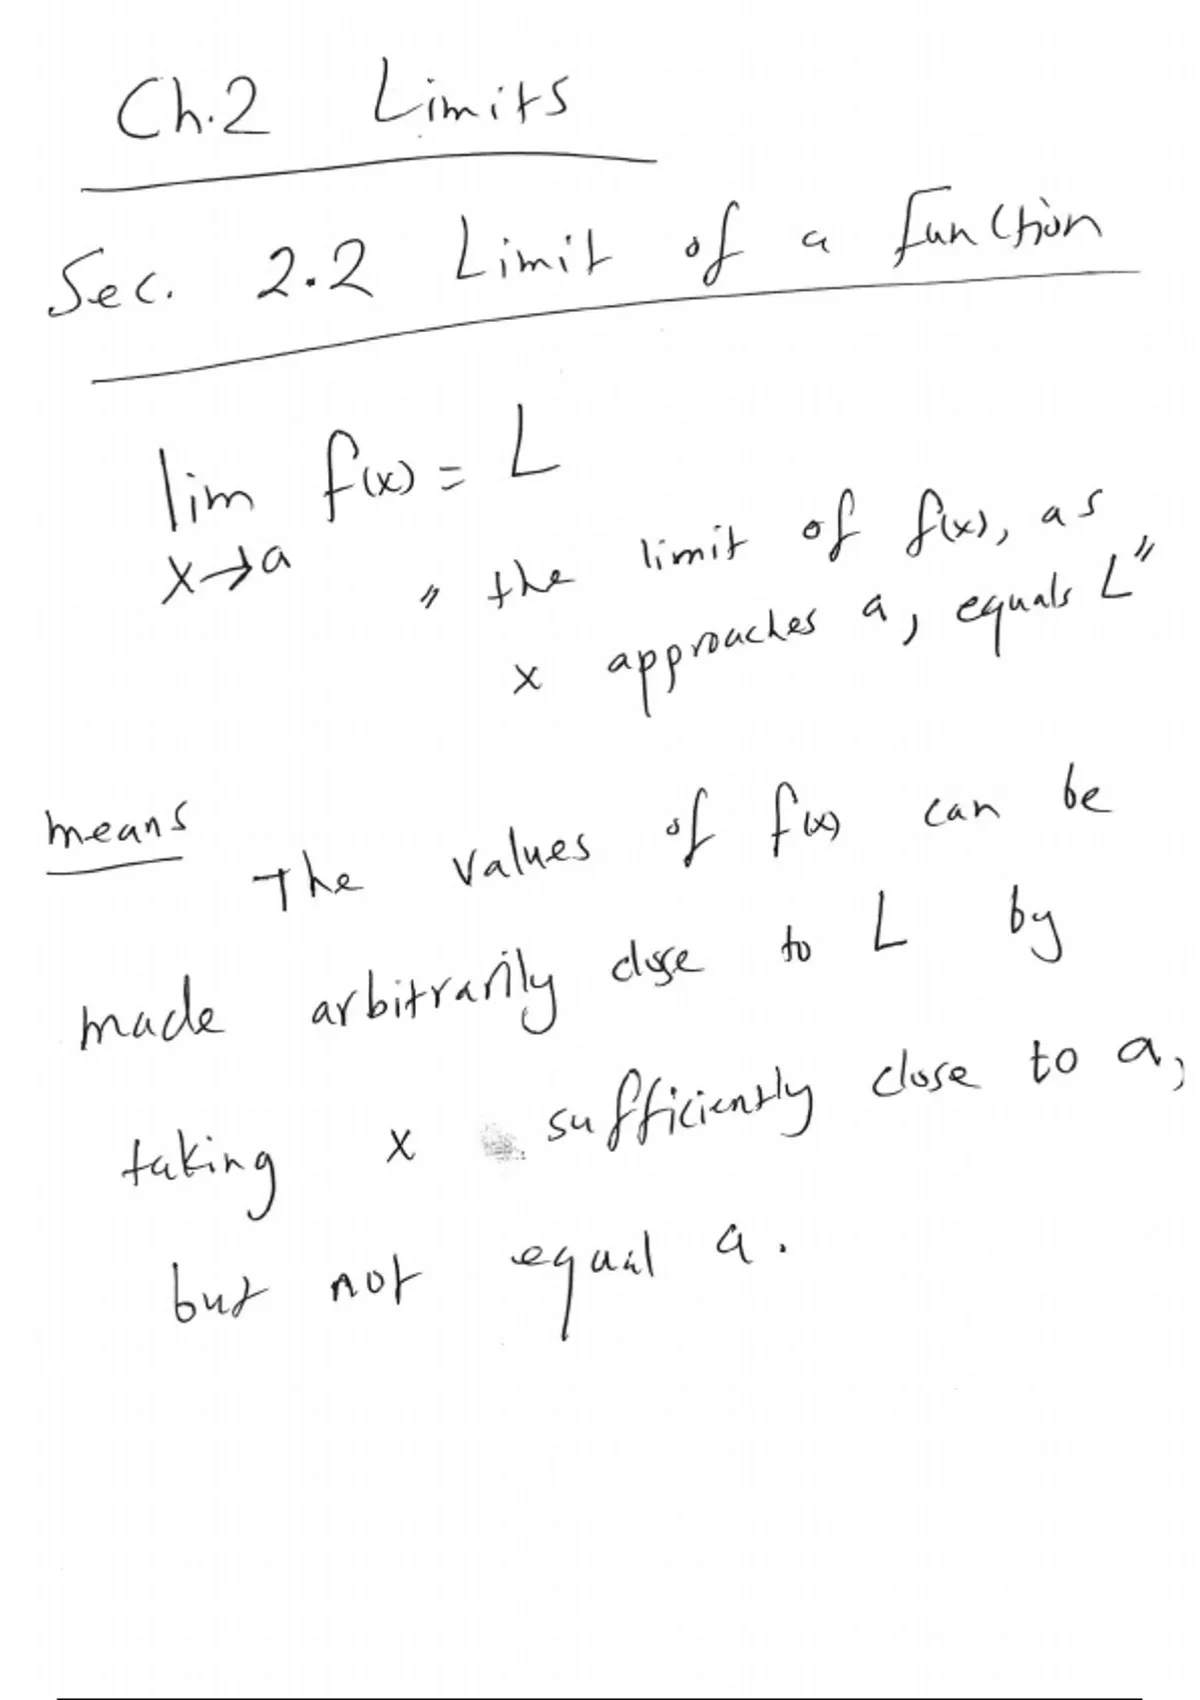 Ch.2 Limits
Sec. 2.2 Limit of a function
lim f(x) = L
x→a
" the limit of f(x), as
x approaches a, equals L"
means
The values of f(x) can be
made arbitrarily close to L by
taking x sufficiently close to a,
but not equal a.